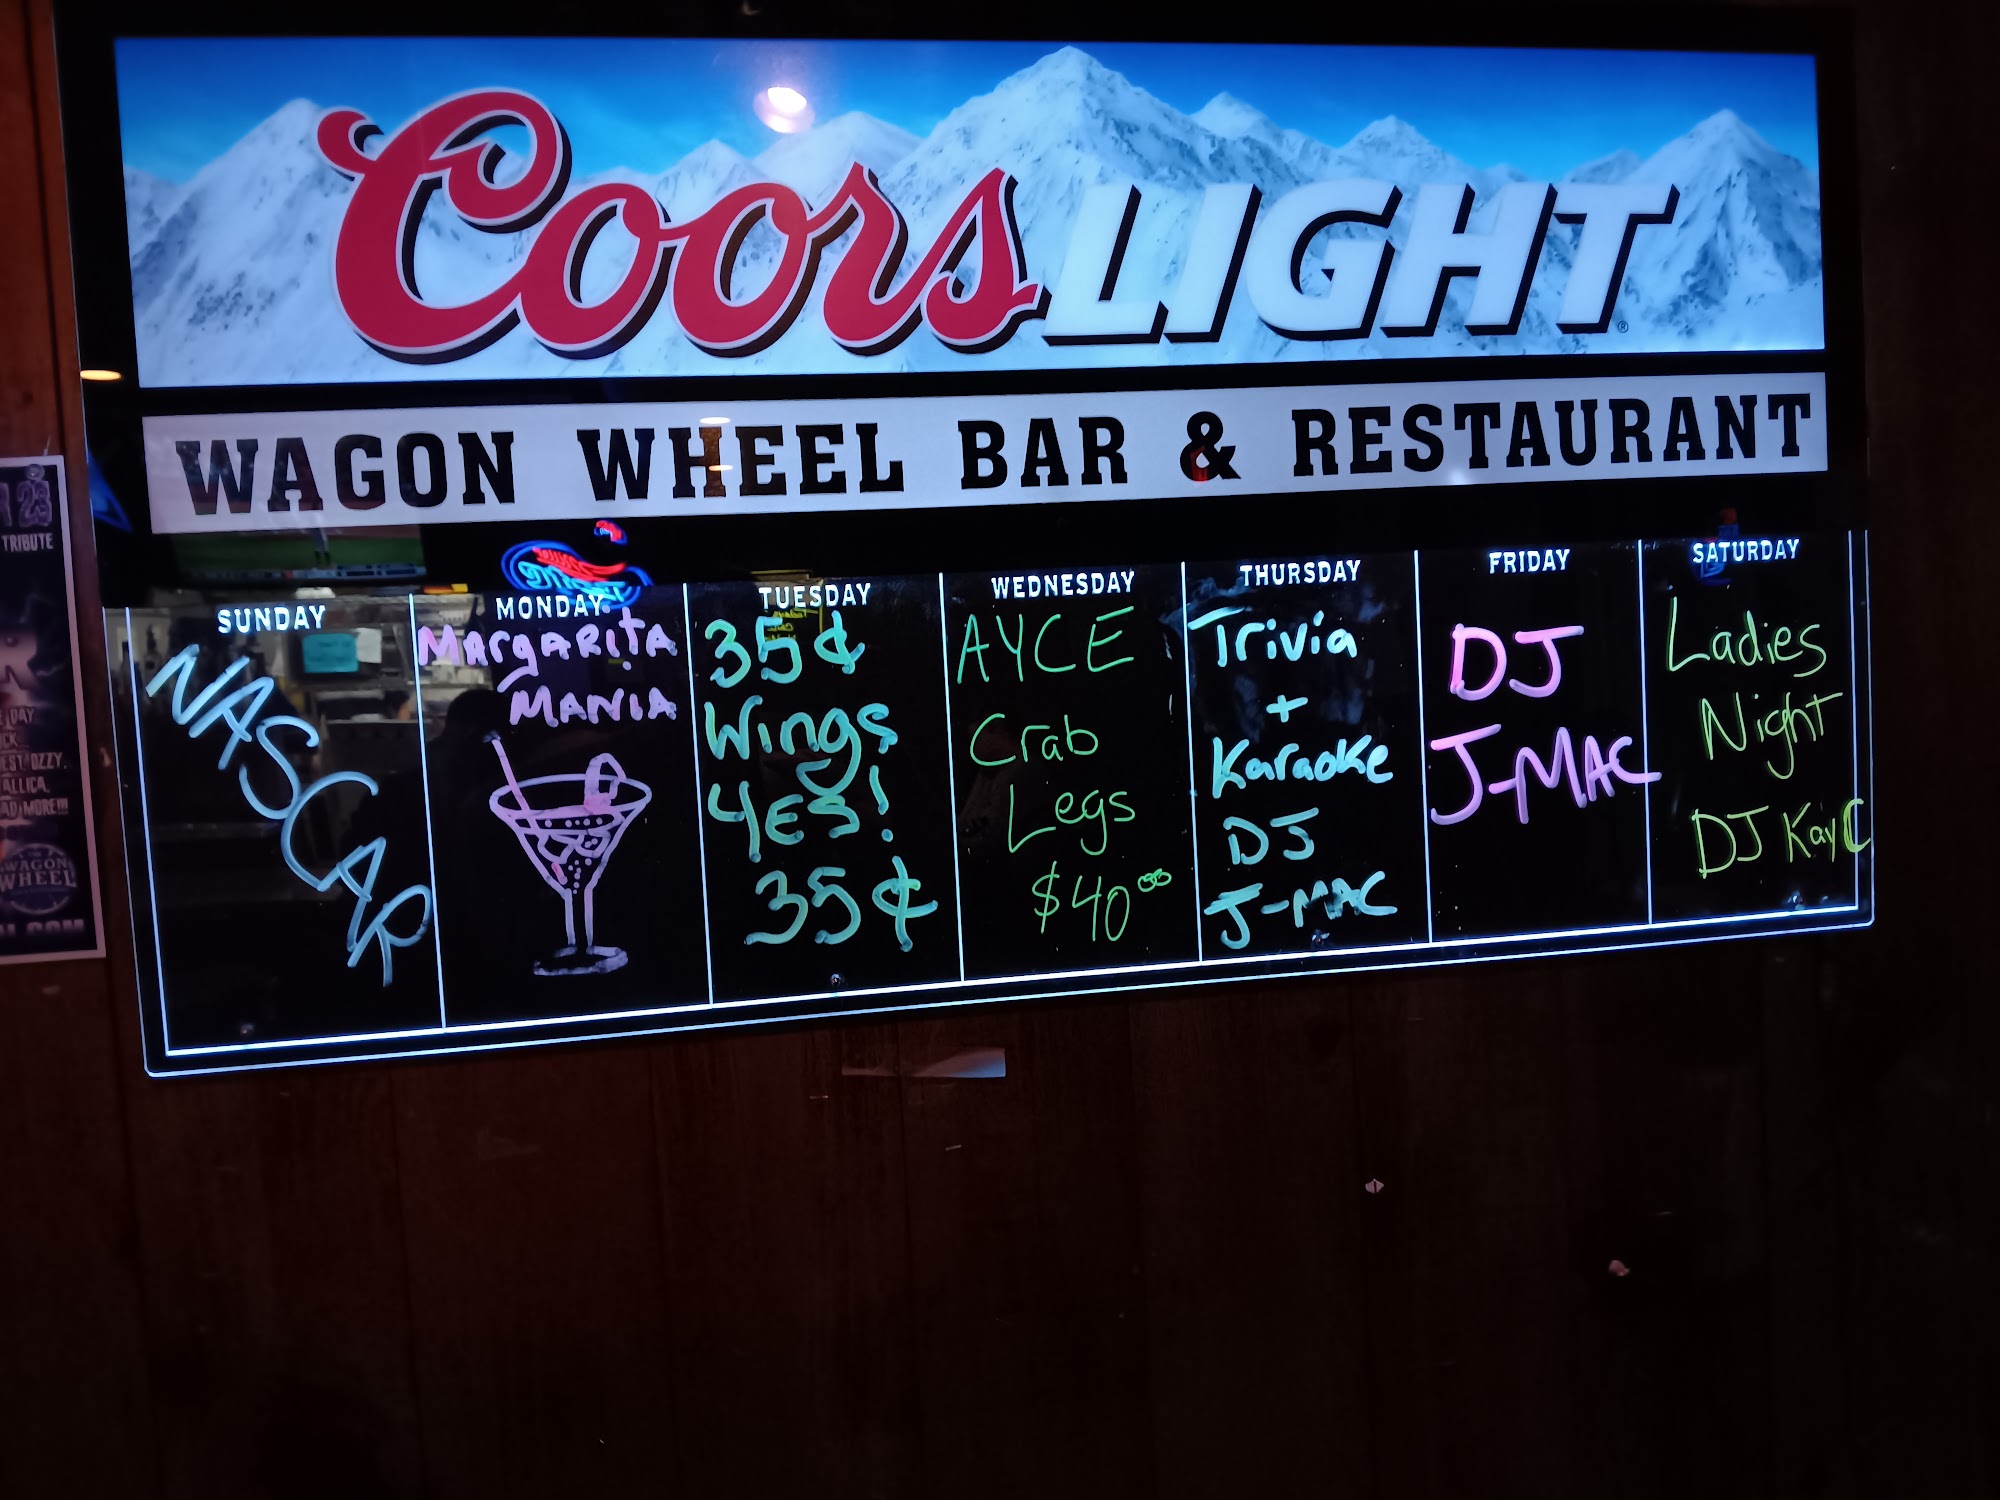 Coors LIGHT
WAGON WHEEL BAR & RESTAURANT
SUNDAY
NASCAR
MONDAY
MARGARITA
MANIA
TUESDAY
35¢
Wings
YES!
35¢
WEDNESDAY
AYCE
Crab
Legs
$40.00
THURSDAY
Trivia
+
Karaoke
DJ
J-MAC
FRIDAY
DJ
J-MAC
SATURDAY
Ladies
Night
DJ Kay C
23
TRIBUTE
DAY
OZZY,
MORE!!!
WAGON
WHEEL